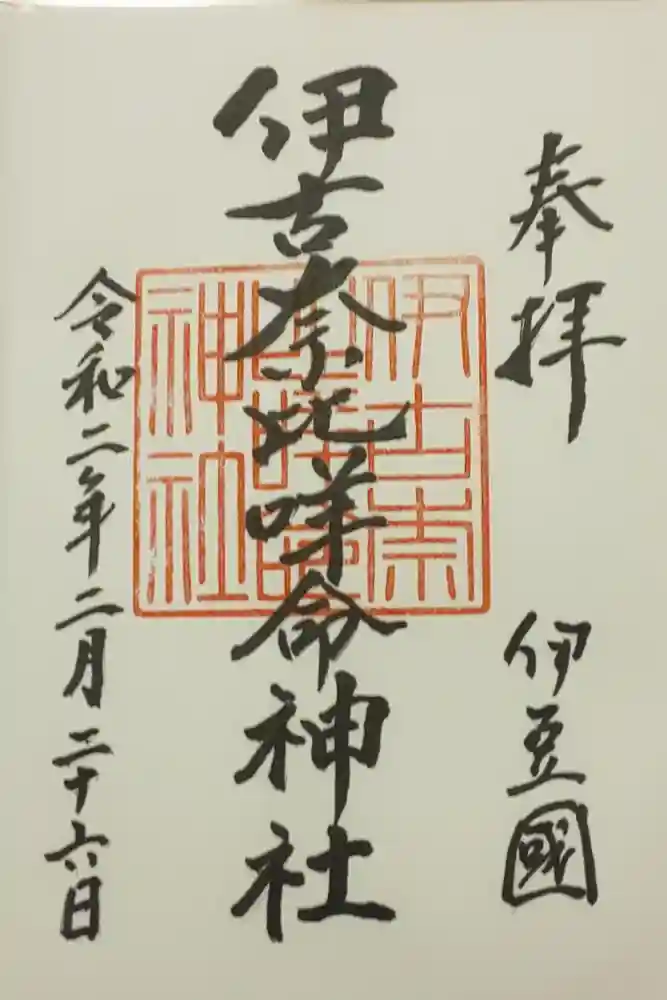 奉拝
伊豆國
伊古奈比咩命神社
令和二年二月二十六日
伊古奈
比咩命
神社